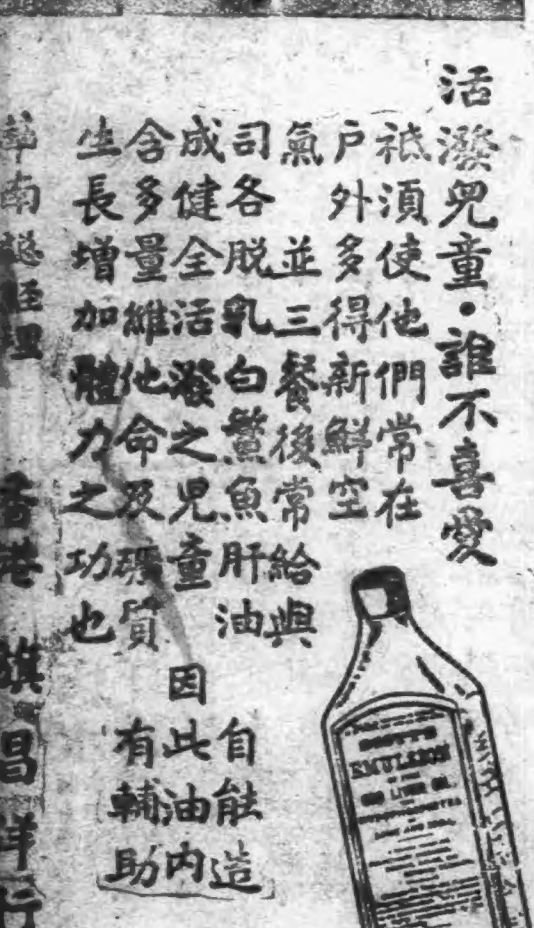 活潑兒童・誰不喜愛
祗須使他們常在
戶外多得新鮮空
氣 並三餐後常給與
司各脫乳白鰵魚肝油 自能造
成健全活潑之児童 因此油內
含多量維他命及礦質 有輔助
生長增加體力之功也
華南總經理 香港 旗昌洋行
SCOTT'S
EMULSION
COD LIVER OIL
LIME AND SODA